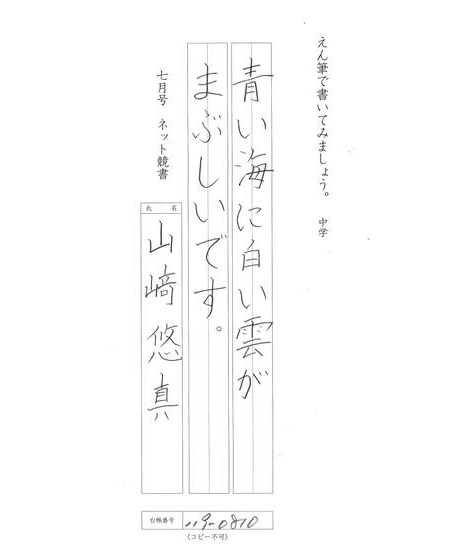 えん筆で書いてみましょう。 中学
青い海に白い雲が
まぶしいです。
七月号 ネット競書
氏名
山﨑悠真
台帳番号
119-0810
《コピー不可》